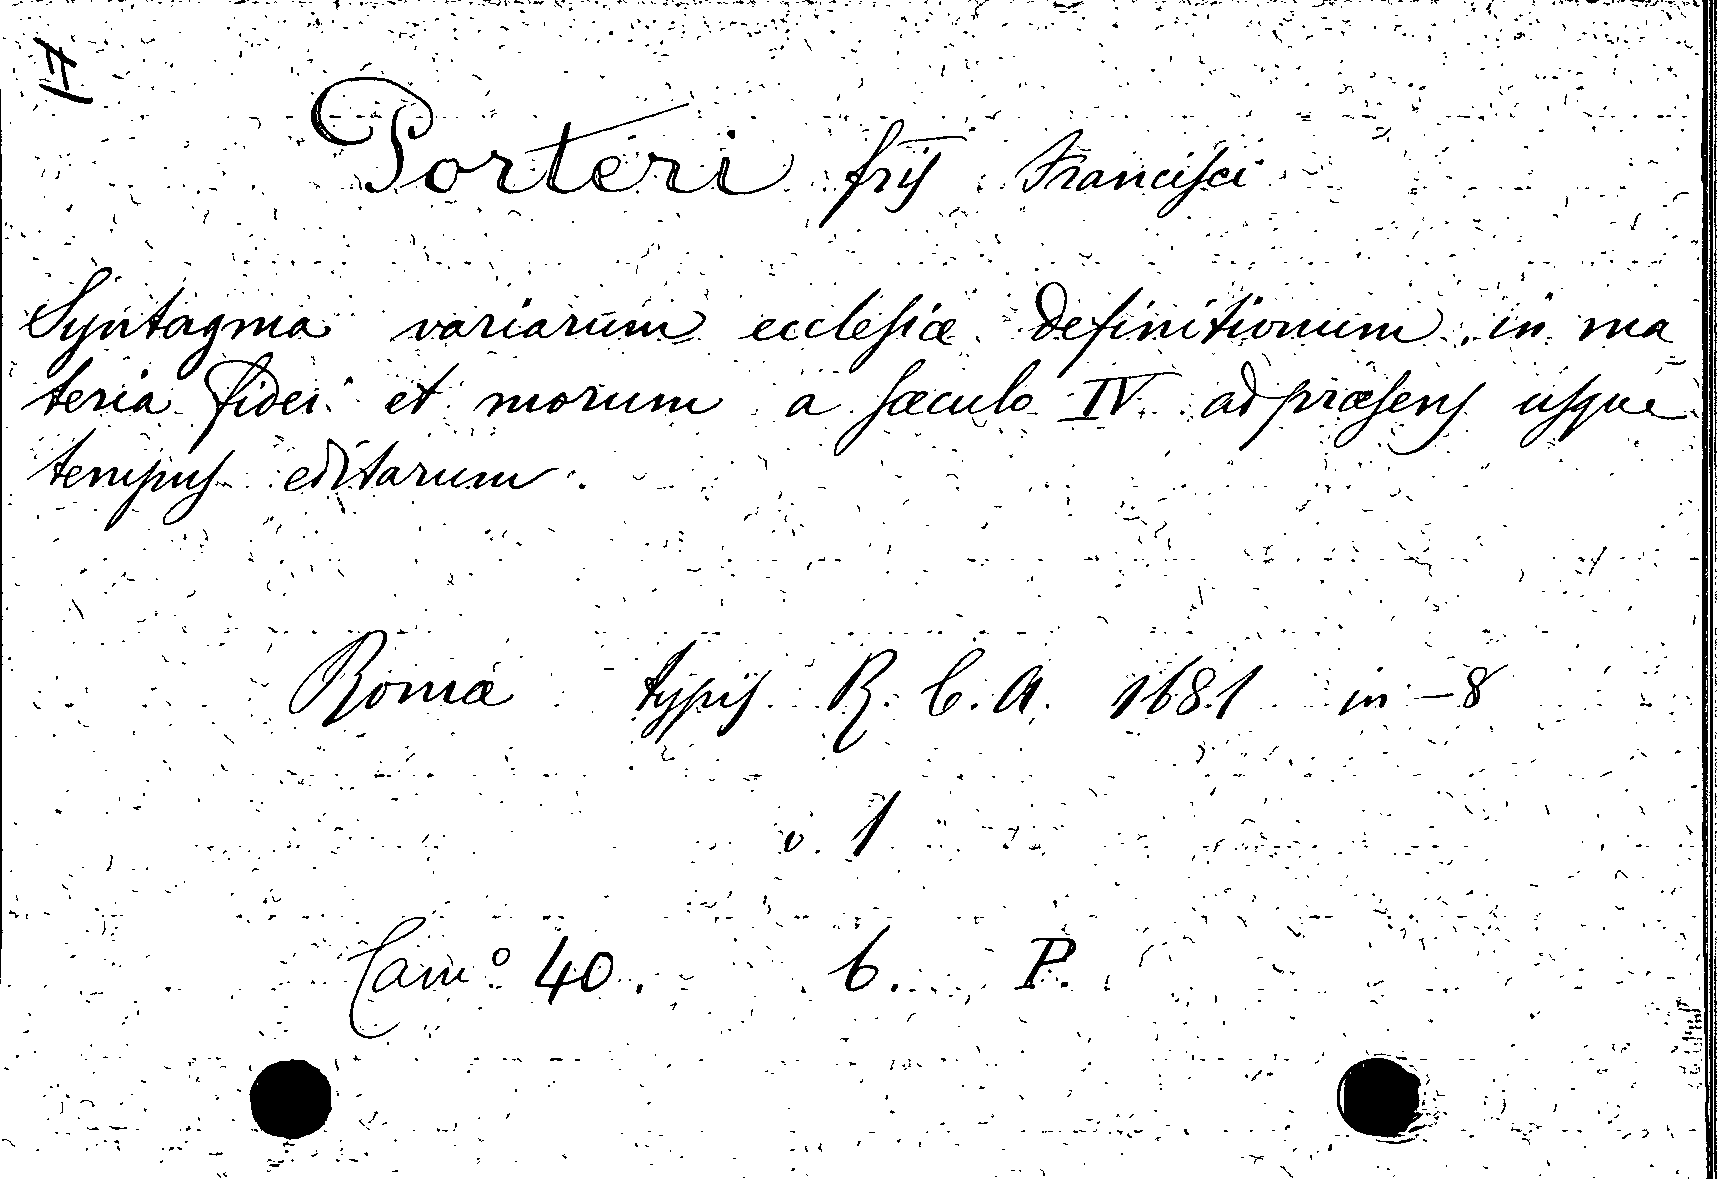 Porteri fris Francisci
Syntagma variarum ecclesiæ definitionum in ma
teria fidei et morum a sæculo IV. ad præsens usque
tempus editarum.
Romæ typis R. C. A. 1681 in-8
v. 1
Cam° 40. 6. P.